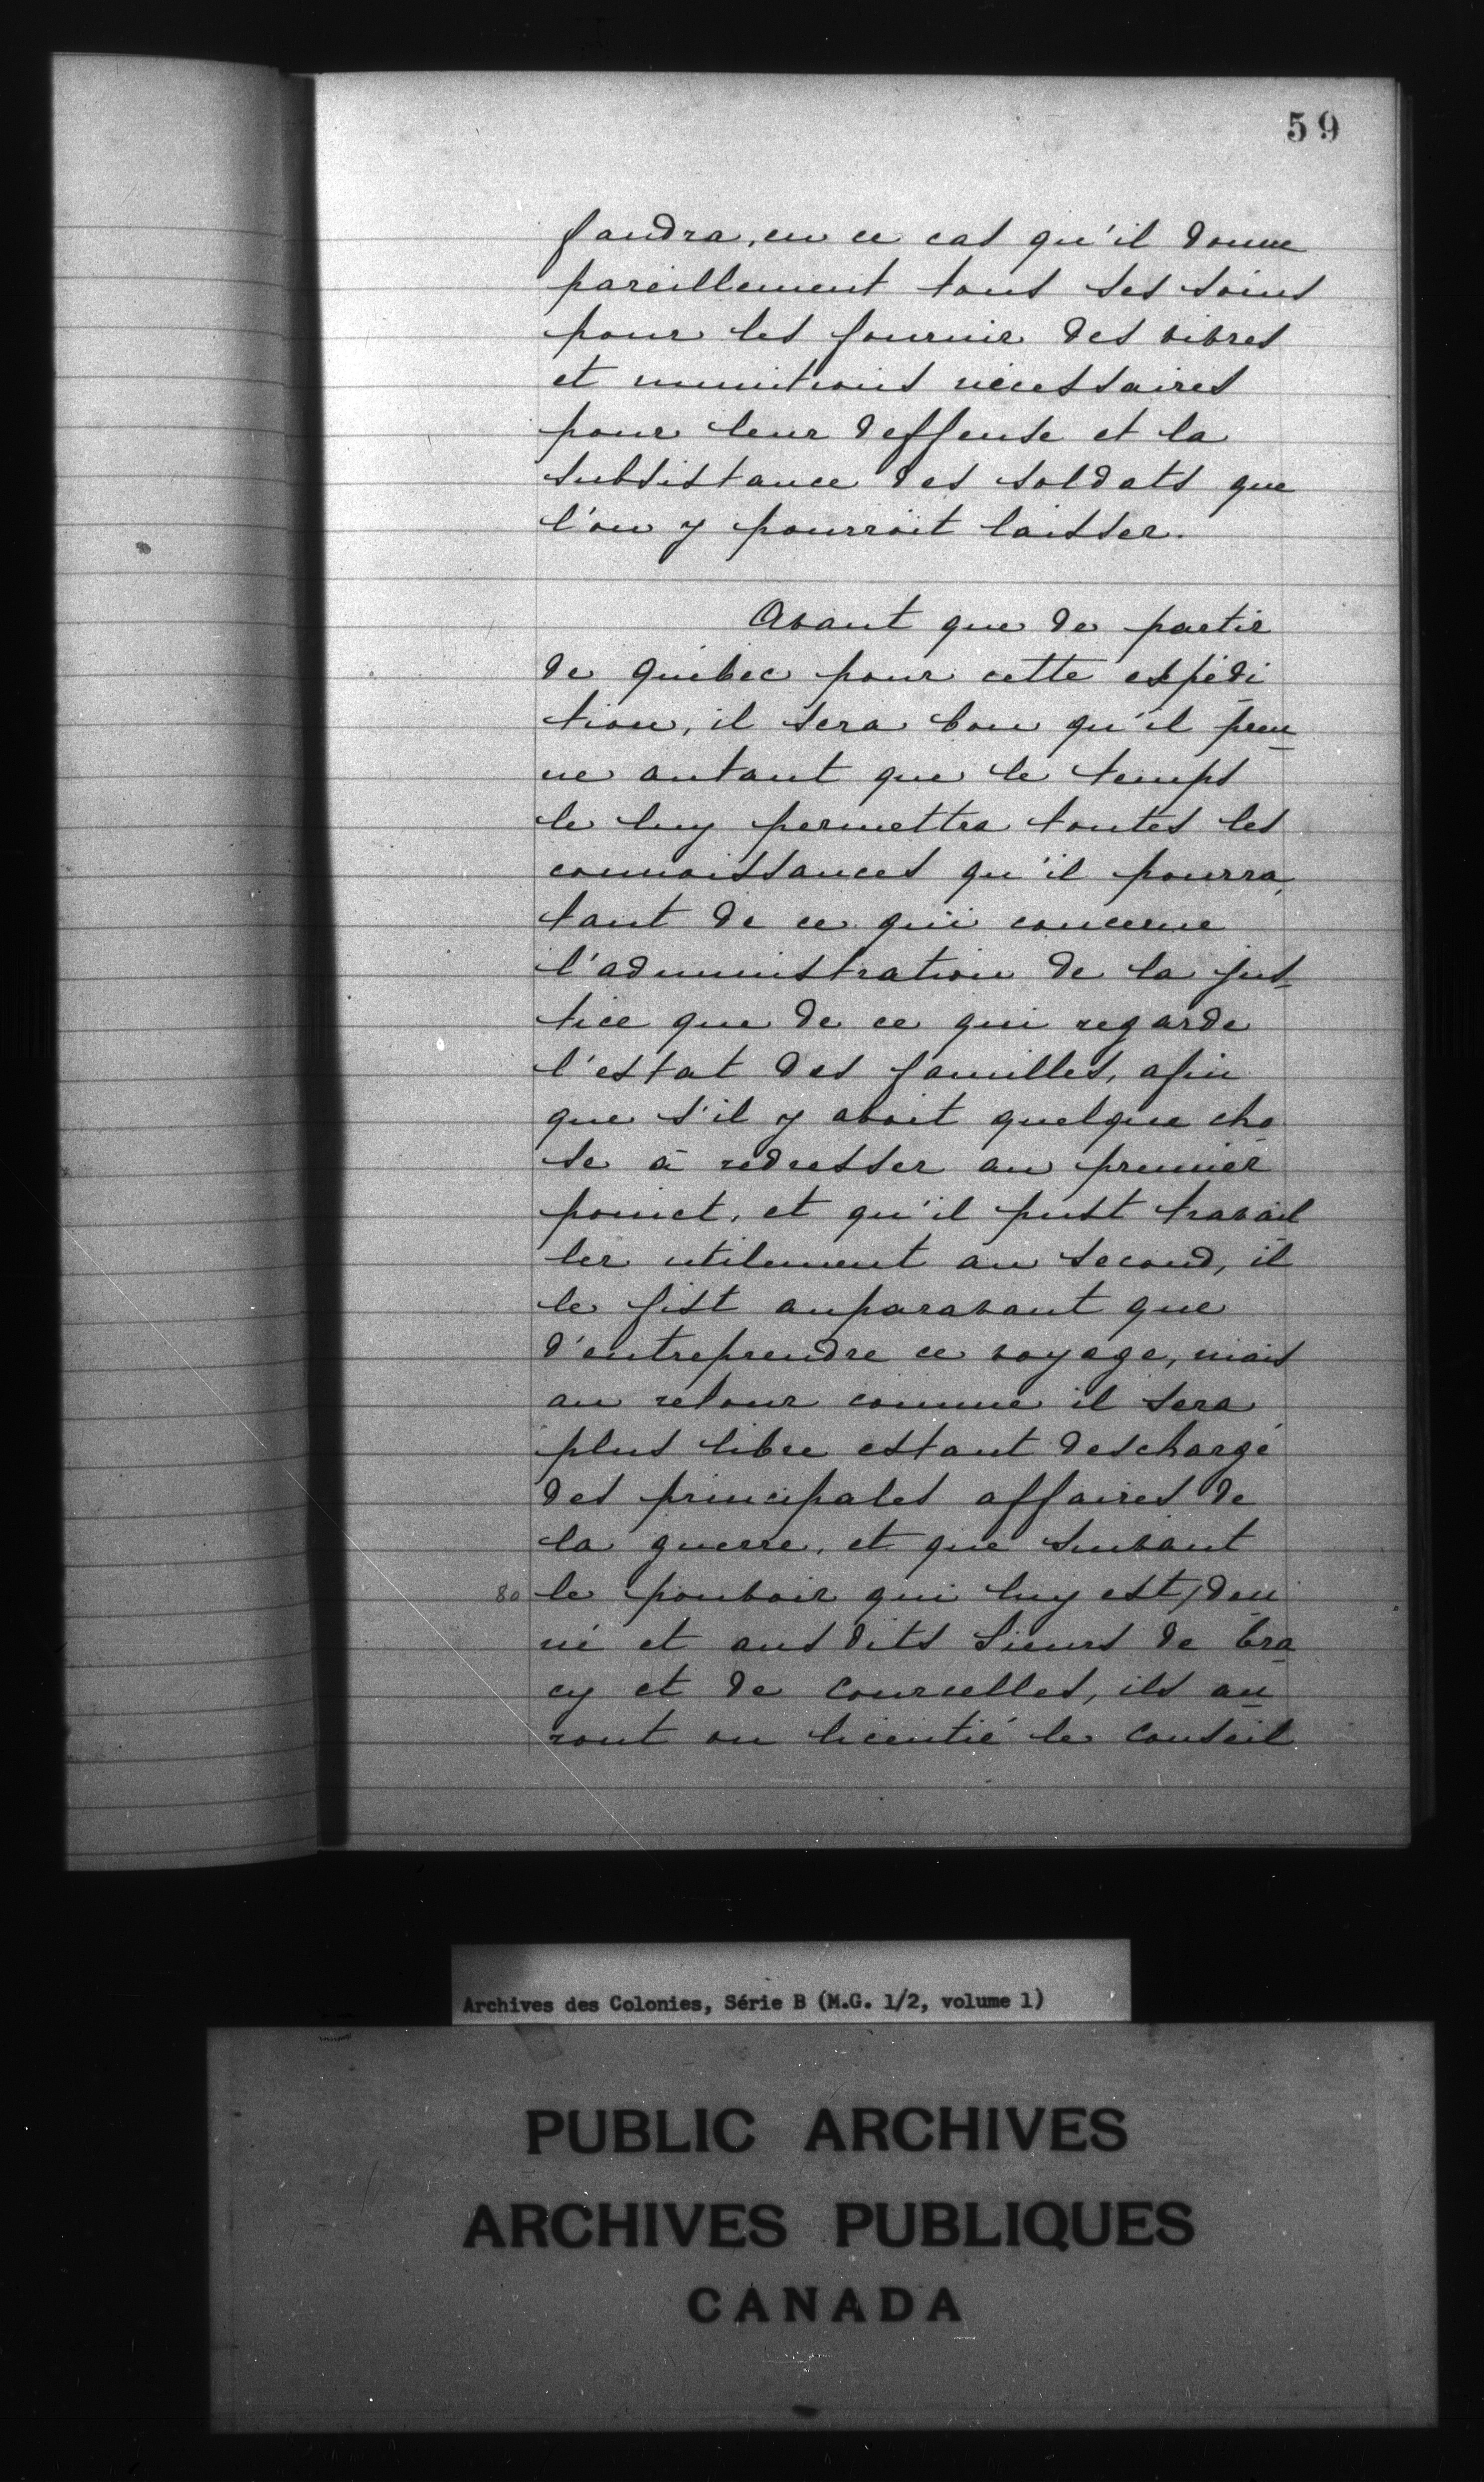 59
faudra, en ce cas qu'il donne
pareillement tous ses soins
pour les fournir des vivres
et munitions nécessaires
pour leur deffense et la
subsistance des soldats que
l'on y pourroit laisser.
Avant que de partir
de Québec pour cette expédi
tion, il sera bon qu'il pren
ne autant que le temps
le luy permettra toutes les
connoissances qu'il pourra,
tant de ce qui concerne
l'administration de la jus-
tice que de ce qui regarde
l'estat des familles, afin
que s'il y avoit quelque cho
se à redresser au premier
poinct, et qu'il pust travail
ler utilement au second, il
le fist auparavant que
d'entreprendre ce voyage, mais
au retour comme il sera
plus libre estant deschargé
des principales affaires de
la guerre, et que suivant
80 le pouvoir qui luy est/don
né et aus dits Sieurs de Tra
cy et de Courcelles, ils au
ront ou licentié le Conseil
Archives des Colonies, Série B (M.G. 1/2, volume 1)
PUBLIC ARCHIVES
ARCHIVES PUBLIQUES
CANADA